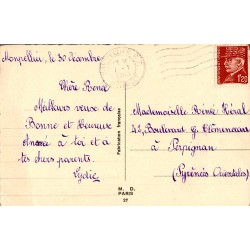 Montpellier, le 30 Décembre
Chère Renée
Meilleurs vœux de
Bonne et Heureuse
Année à toi et a
tes chers parents.
Lydie
Fabrication française
M. D.
PARIS
27
1F20
Mademoiselle Renée Héral
42, Boulevard G. Clémenceau
à Perpignan
(Pyrénées Orientales)